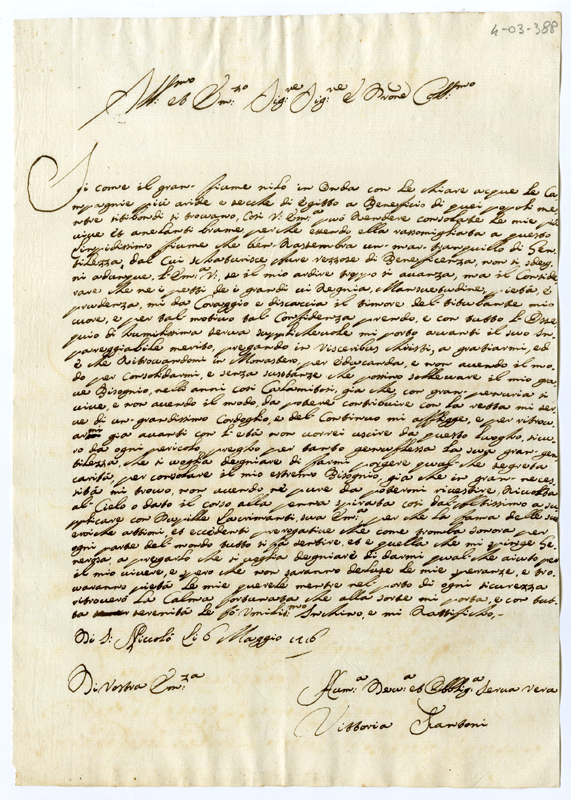 4-03-388
Ill:mo et Em:mo Sig:re Sig:re e Prone Coll:mo
Si come il gran fiume nilo in Onda con le chiare acque le Ca-
mpagnie più aride e secche di Egitto a Beneficio di quei popoli me-
ntre sitibondi si trovano, Così V: Em:a può Rendere consolate le mie più
vive et anelanti brame perche essendo ella rassomigliata a questo
limpidissimo fiume che ben Rassembra un mar tranquillo di Gen-
tilezza, dal Cui scaturisce pure rezzose di Beneficenza, non si sdeg-
ni adunque l'Em:a V:, se il mio ardire troppo si avanza, ma il Conside-
rare che ne i petti de i grandi vi Regnia, Mansuetudine, pietà e
prudenza, mi da Coraggio e discaccia il timore del titubante mio
cuore, e per tal motivo tal Confidenza prendo, e con tutto l'Osse-
quio di humilissima serva supplichevole mi porto avanti il suo In-
pareggiabile merito, pregando in Visceribus Christi, a gratiarmi, ed
è che Ritrovandomi in Monastero, per Educanda, e non avendo il mo-
do per Consolidarmi, e senza sustanze che possino sollevare il mio gra-
ve Bisognio, nelli anni così Calamitosi, già che con gran penuria si
vive, e non avendo il modo da potere contribuire con la retta mi ser-
ve di un grandissimo Cordoglio, e del Continuo mi affligge, e per ritrov-
armi già avanti con l'età non vorrei uscire da questo luogho sicu-
ro da ogni pericolo, pregho per tanto genuflessa la sua gran gen-
tilezza, che si voglia degniare di farmi porgere qual che segreta
carità per consolare il mio estremo Bisognio, già che in gran neces-
sità mi trovo, non avendo, ne pure da potermi rivestire, Rivolta
al Cielo o dato il corso alla penna, spirata così dal'Altissimo a su-
pplicare con Pupille Lacrimanti, sua Em:a per che la fama delle sue
eroiche attioni, et eccedenti prerogative che come tromba sonora per
ogni parte del mondo tutto si fa sentire, et e quella che mi spinge Se-
renza, a pregarlo che si voglia degniare di darmi qual che aiuto per
il mio vivere, e spero che non saranno deluse le mie speranze, e tro-
varanno pietà le mie querele mentre nel porto di ogni sicurezza
ritroverò la Calma fortunatza che alla sorte mi porta, e con tut-
ta serenità le fò Umiliss:mo Inchino, e mi Rattifficho,-
Di S: Niccolò Li 6 Maggio 1716
Di Vostra Em:za
Hum:a Dev:a et Obblig:a Serva Vera
Vittoria Fantoni